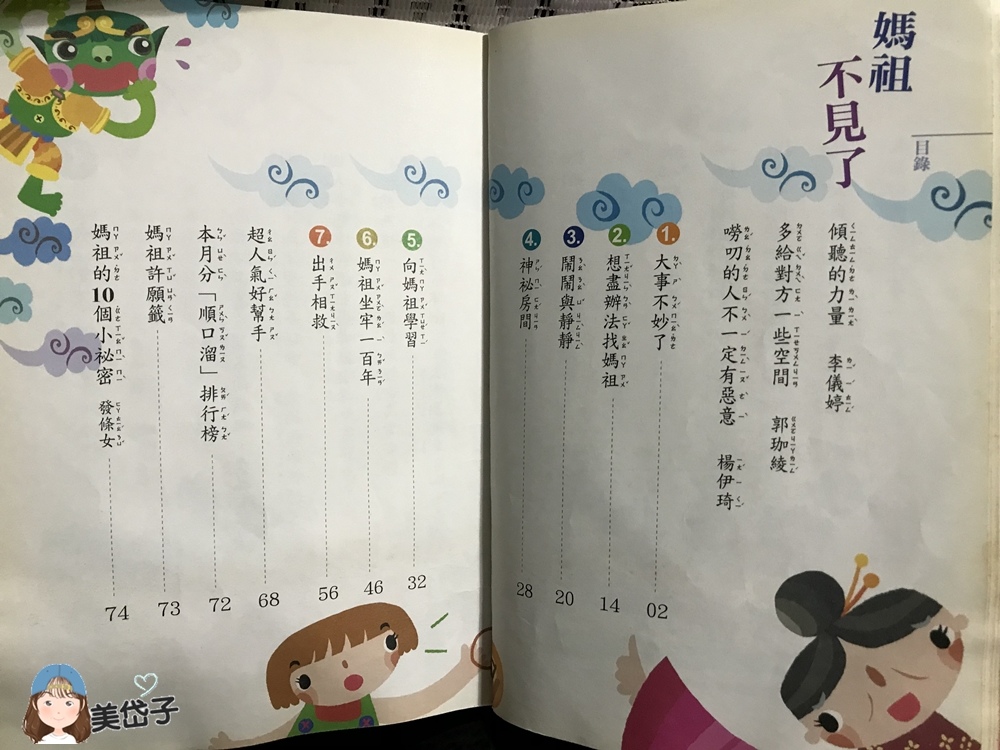 媽祖
不見了
目錄
傾聽的力量 李儀婷
多給對方一些空間 郭珈綾
嘮叨的人不一定有惡意 楊伊琦
1. 大事不妙了 02
2. 想盡辦法找媽祖 14
3. 鬧鬧與靜靜 20
4. 神祕房間 28
5. 向媽祖學習 32
6. 媽祖坐牢一百年 46
7. 出手相救 56
超人氣好幫手 68
本月分「順口溜」排行榜 72
媽祖許願籤 73
媽祖的10個小祕密 發條女 74
美岱子